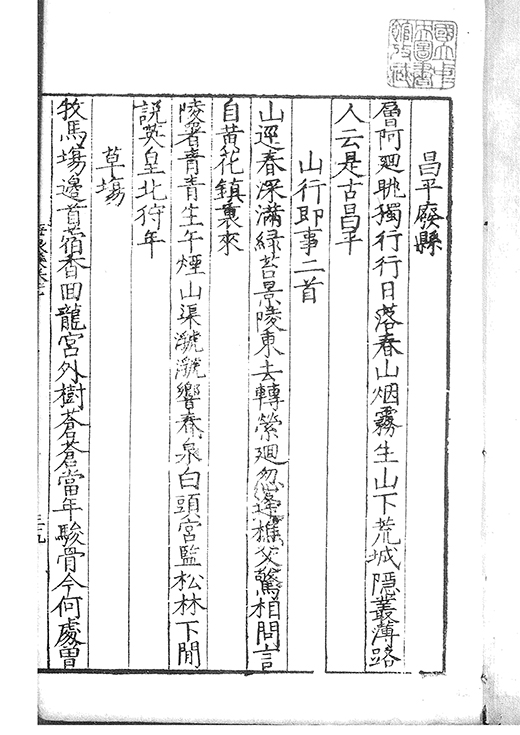 國立中
央圖書
館收藏
昌平廢縣
層阿廻眺獨行行日落春山烟霧生山下荒城隱叢薄路
人云是古昌平
山行即事二首
山逕春深滿緑苔景陵東去轉縈廻忽逢樵父驚相問言
自黄花鎮裏來
陵署青青生午煙山渠㶁㶁響春泉白頭宮監松林下閒
説英皇北狩年
草塲
牧馬塲邉苜蓿香囬龍宮外樹蒼蒼當年駿骨今何處曽